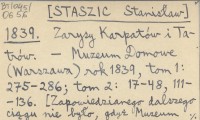 [STASZIC Stanisław]
1839. Zarysy Karpatów i Ta-
trów. — Muzeum Domowe
(Warszawa) rok 1839, tom 1:
275-286; tom 2: 17-48, 111-
-136. [Zapowiedzianego dalszego
ciągu nie było, gdyż Muzeum